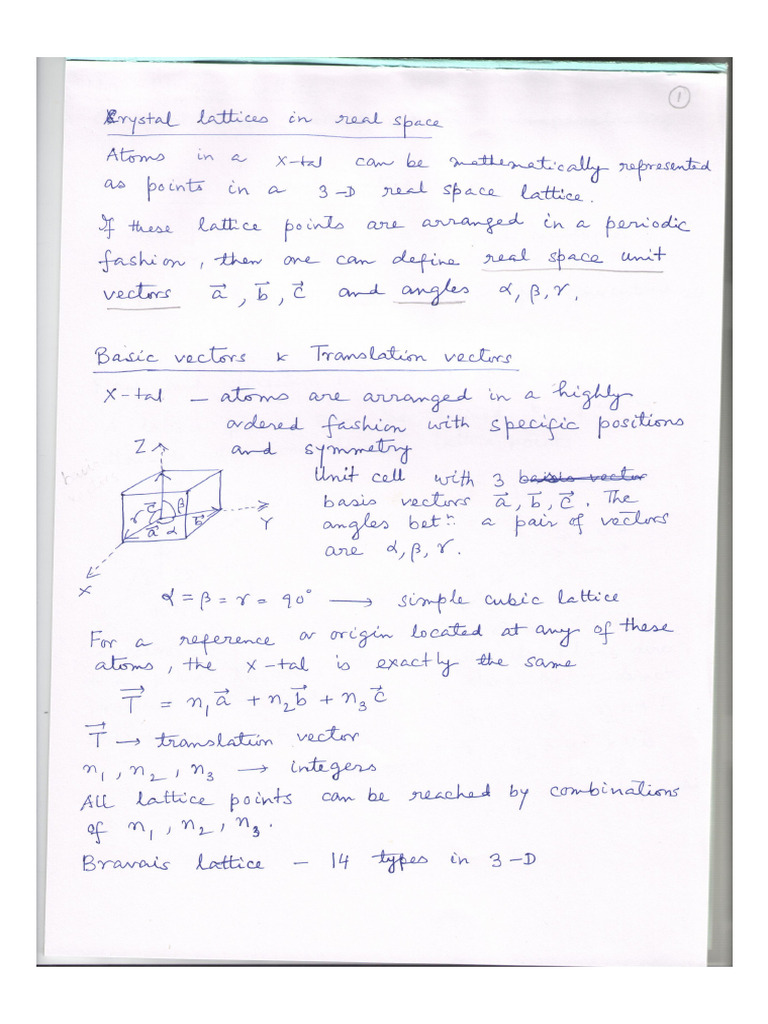 1
Crystal lattices in real space
Atoms in a x-tal can be mathematically represented
as points in a 3-D real space lattice.
If these lattice points are arranged in a periodic
fashion, then one can define real space unit
vectors a⃗, b⃗, c⃗ and angles α, β, γ.
Basic vectors & Translation vectors
X-tal – atoms are arranged in a highly
ordered fashion with specific positions
and symmetry
Z
Unit cell with 3 basis vector
basis vectors a⃗, b⃗, c⃗. The
angles betⁿ a pair of vectors
are α, β, γ.
c⃗ β
γ b⃗
a⃗ α
Y
X
α = β = γ = 90° ⟶ simple cubic lattice
For a reference or origin located at any of these
atoms, the x-tal is exactly the same
T⃗ = n₁a⃗ + n₂b⃗ + n₃c⃗
T⃗ → translation vector
n₁, n₂, n₃ ⟶ integers
All lattice points can be reached by combinations
of n₁, n₂, n₃.
Bravais lattice – 14 types in 3-D